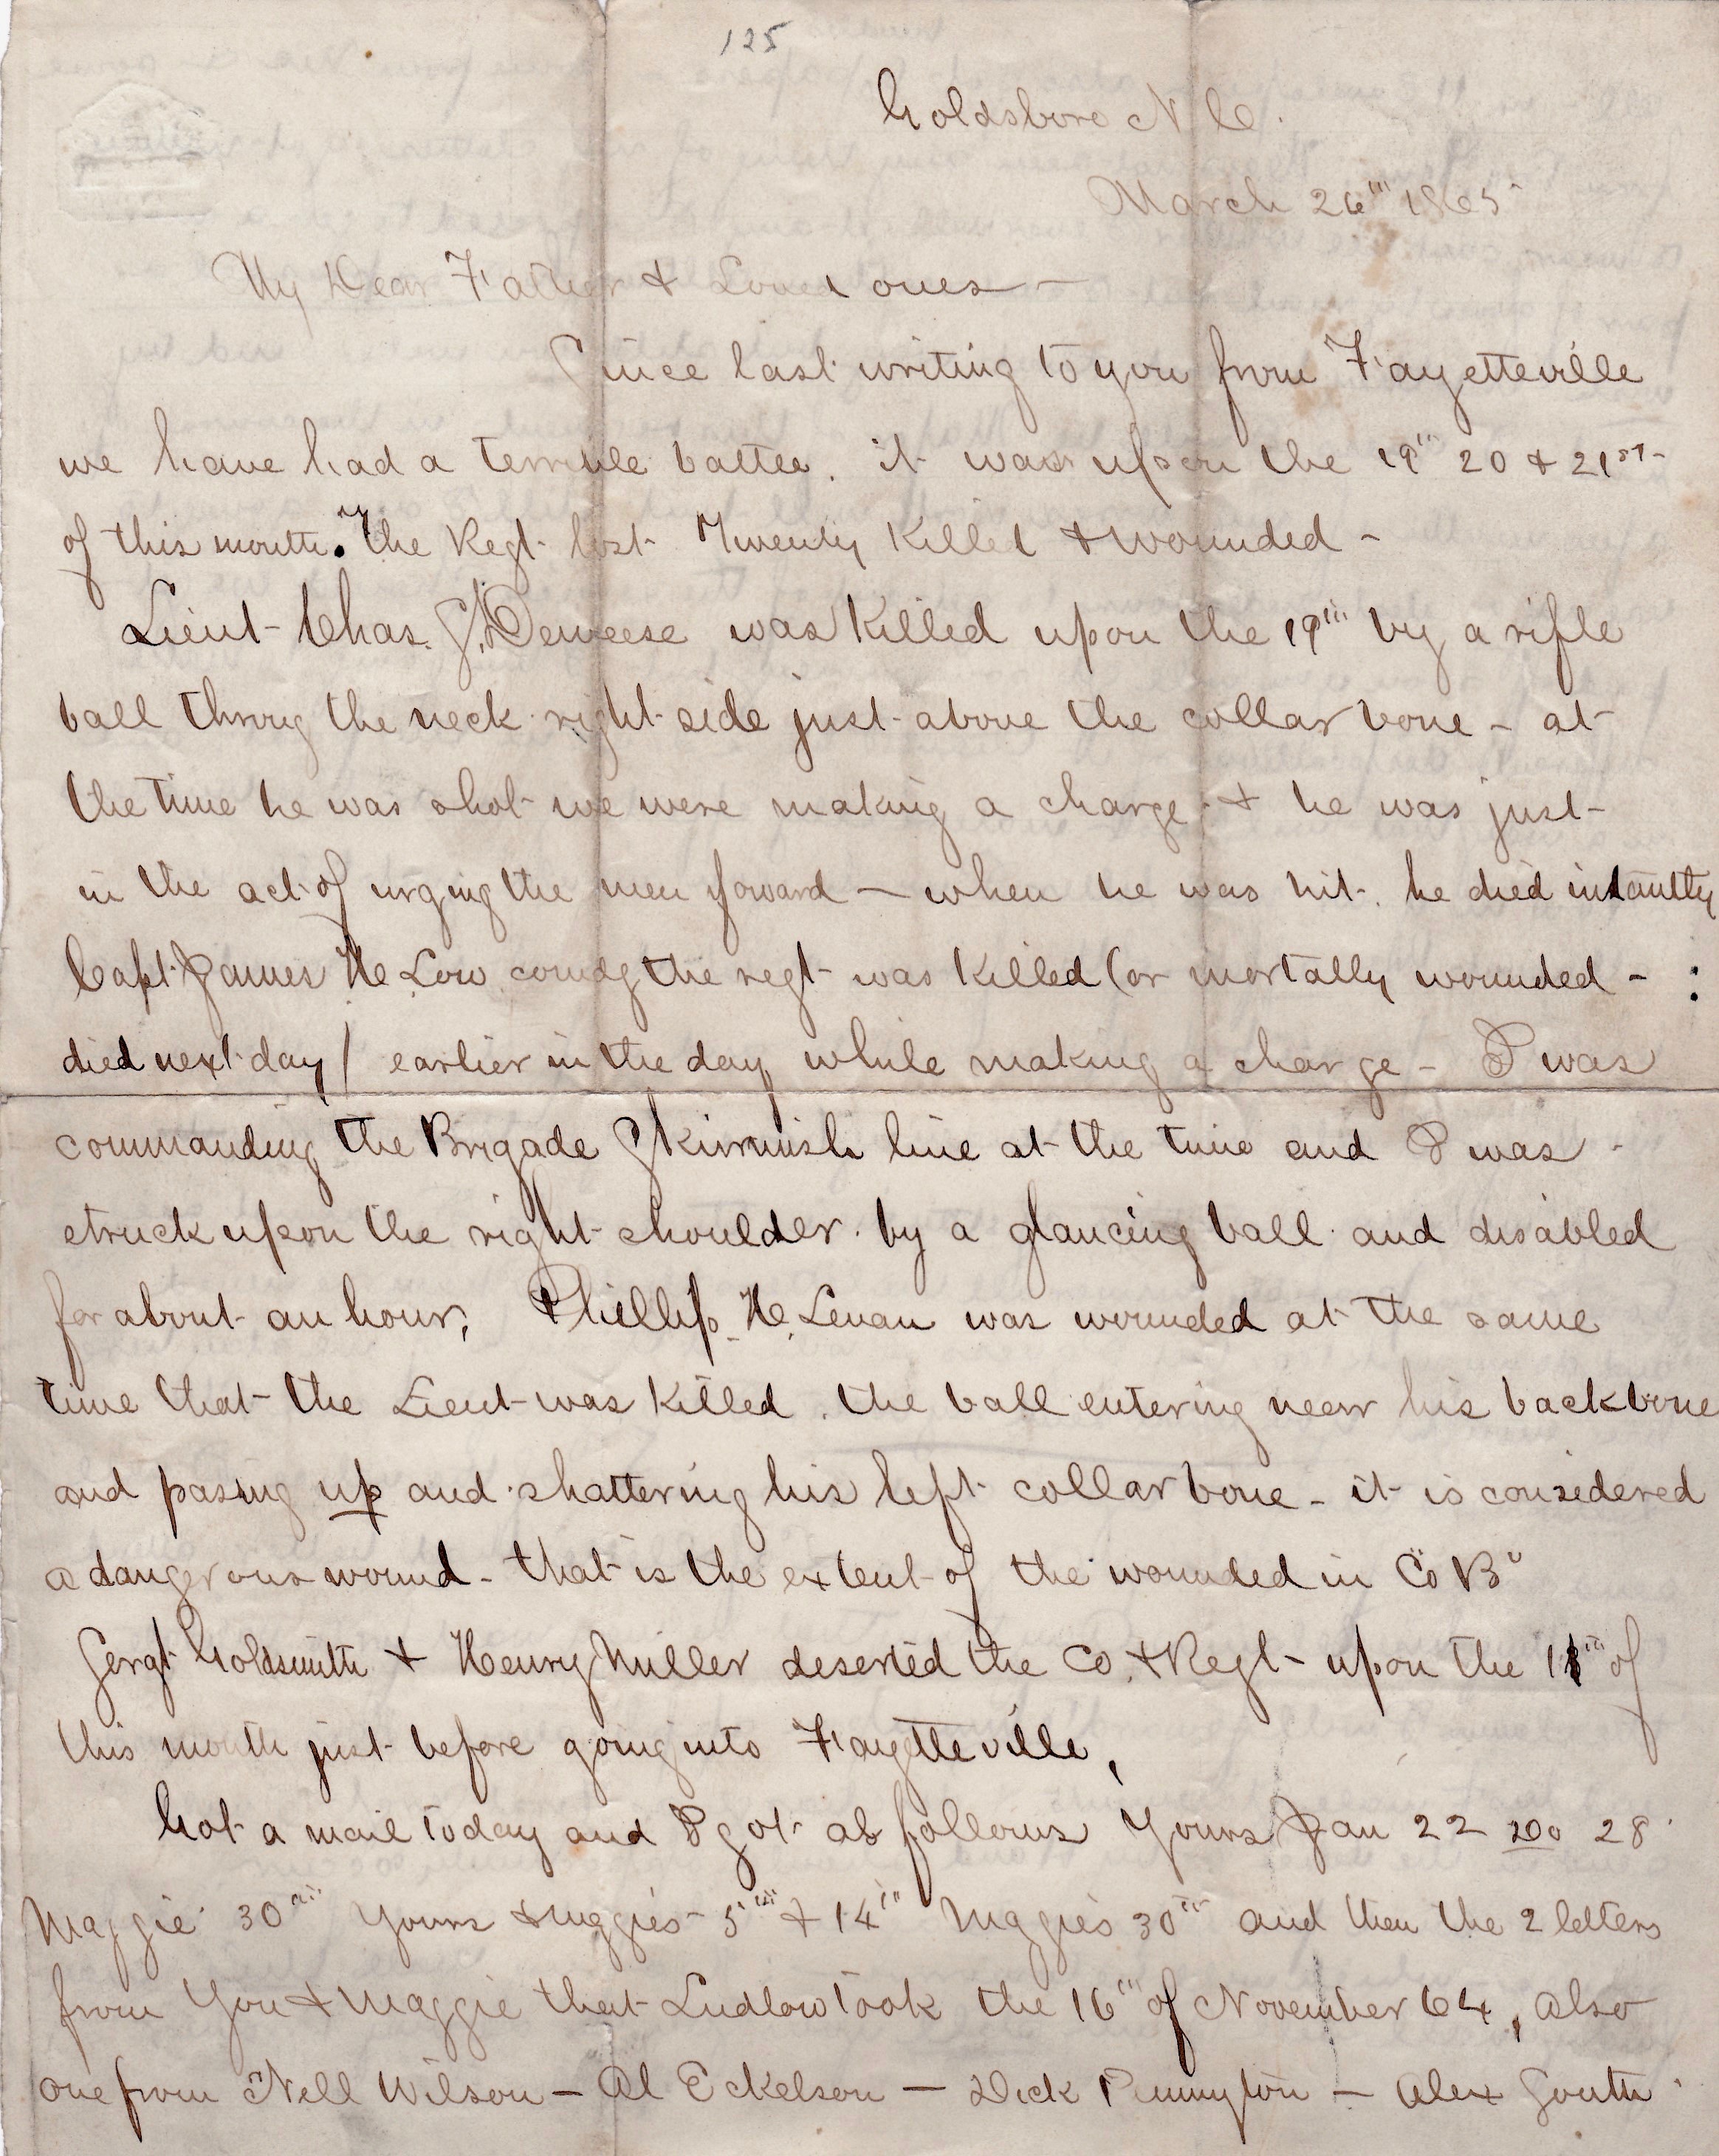 125
Goldsboro N C.
March 26th 1865
My Dear Father & Loved ones —
Since last writing to you from Fayetteville
we have had a terrible battle. it was upon the 19th 20 & 21st
of this month. The Regt lost Twenty Killed & wounded -
Lieut Chas. J. Deweese was Killed upon the 19th by a rifle
ball throug the neck right side just above the collar bone - at
the time he was shot we were making a charge & he was just
in the act of urging the men foward — when he was hit. he died instantly
Capt James H. Low comdg the regt was Killed (or mortally wounded -
died next day) earlier in the day while making a charge - I was
commanding the Brigade Skirmish line at the time and I was
struck upon the right shoulder by a glancing ball and disabled
for about an hour, Phillip H. Lenan was wounded at the same
time that the Lieut was Killed. the ball entering near his backbone
and pasing up and shattering his left collar bone - it is considered
a dangerous wound - that is the extent of the wounded in Co B"
Sergt Goldsmith & Henry Miller deserted the Co. & Regt upon the 11th of
this month just before going into Fayetteville,
Got a mail today and I got as follows Yours Jan 22 Do 28
Maggie 30th Yours & Maggies 5th & 14th Maggies 30th and then the 2 letters
from You & Maggie that Ludlow took the 16th of November 64, also
one from Nell Wilson — Al Eckelson — Dick Pennyton — Alex South